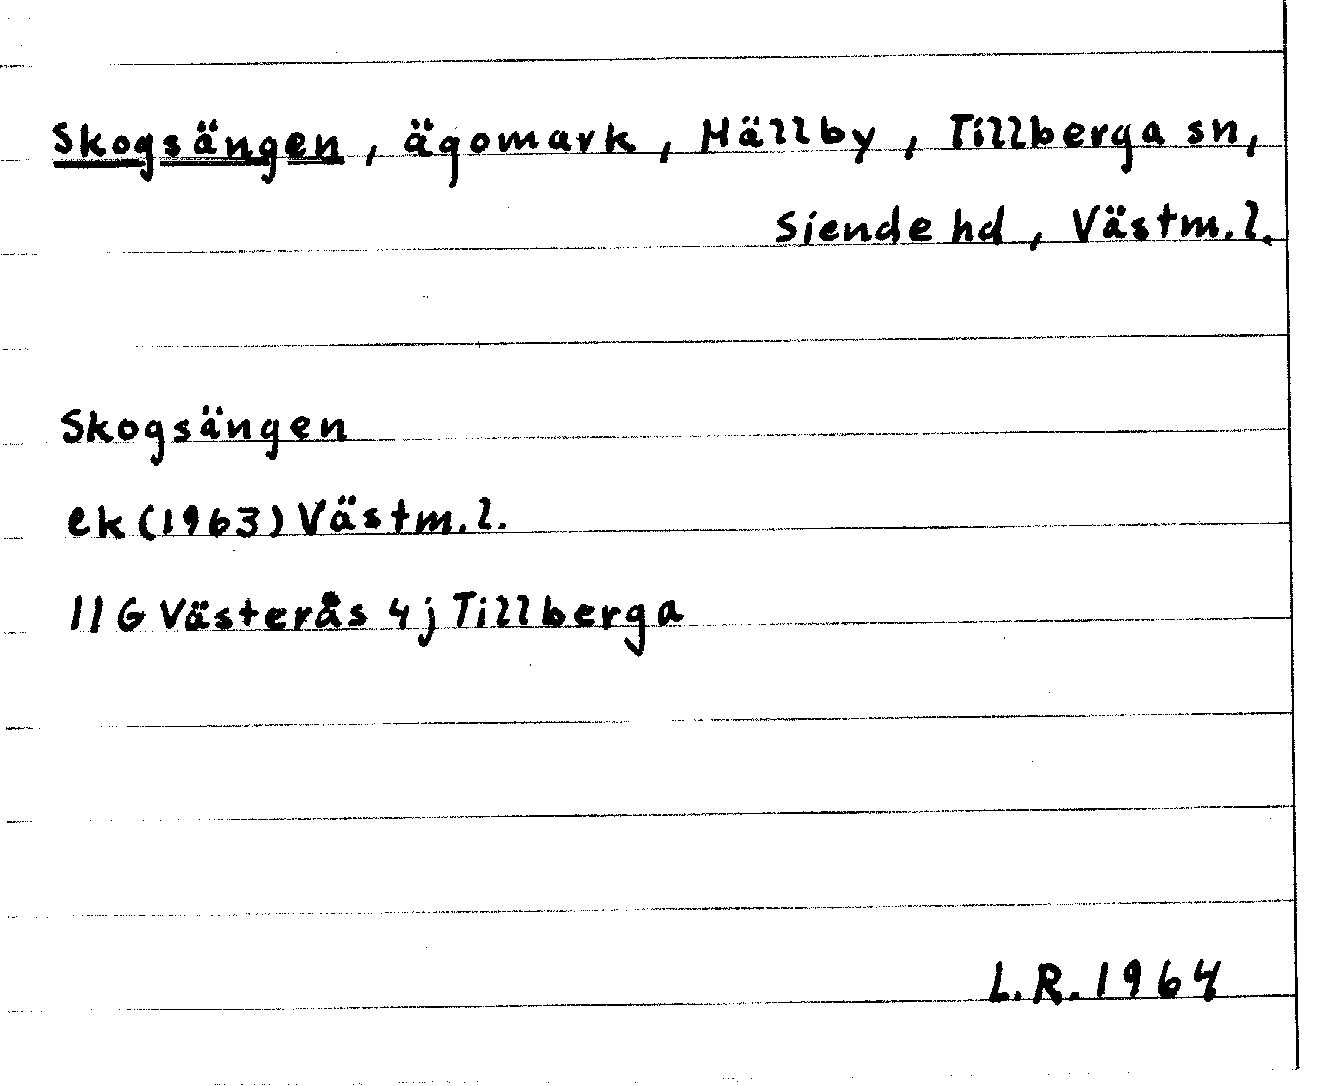 Skogsängen, ägomark, Hällby, Tillberga sn,
Siende hd, Västm.l.
Skogsängen
ek (1963) Västm.l.
11G Västerås 4j Tillberga
L.R. 1964